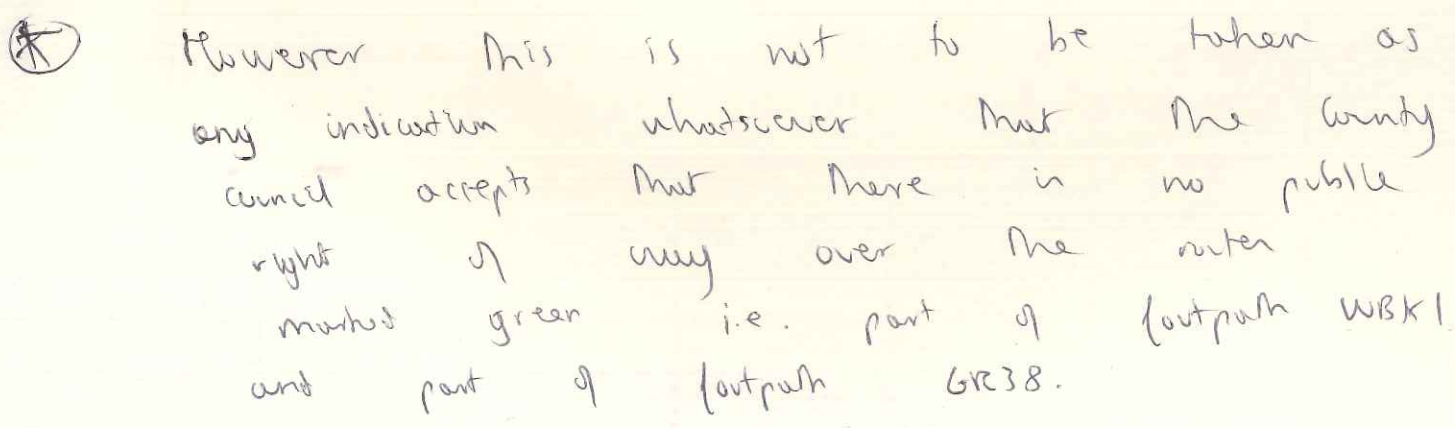 However this is not to be taken as
any indication whatsoever that the County
council accepts that there is no public
right of way over the routes
marked green i.e. part of footpath WBK1
and part of footpath GR38.